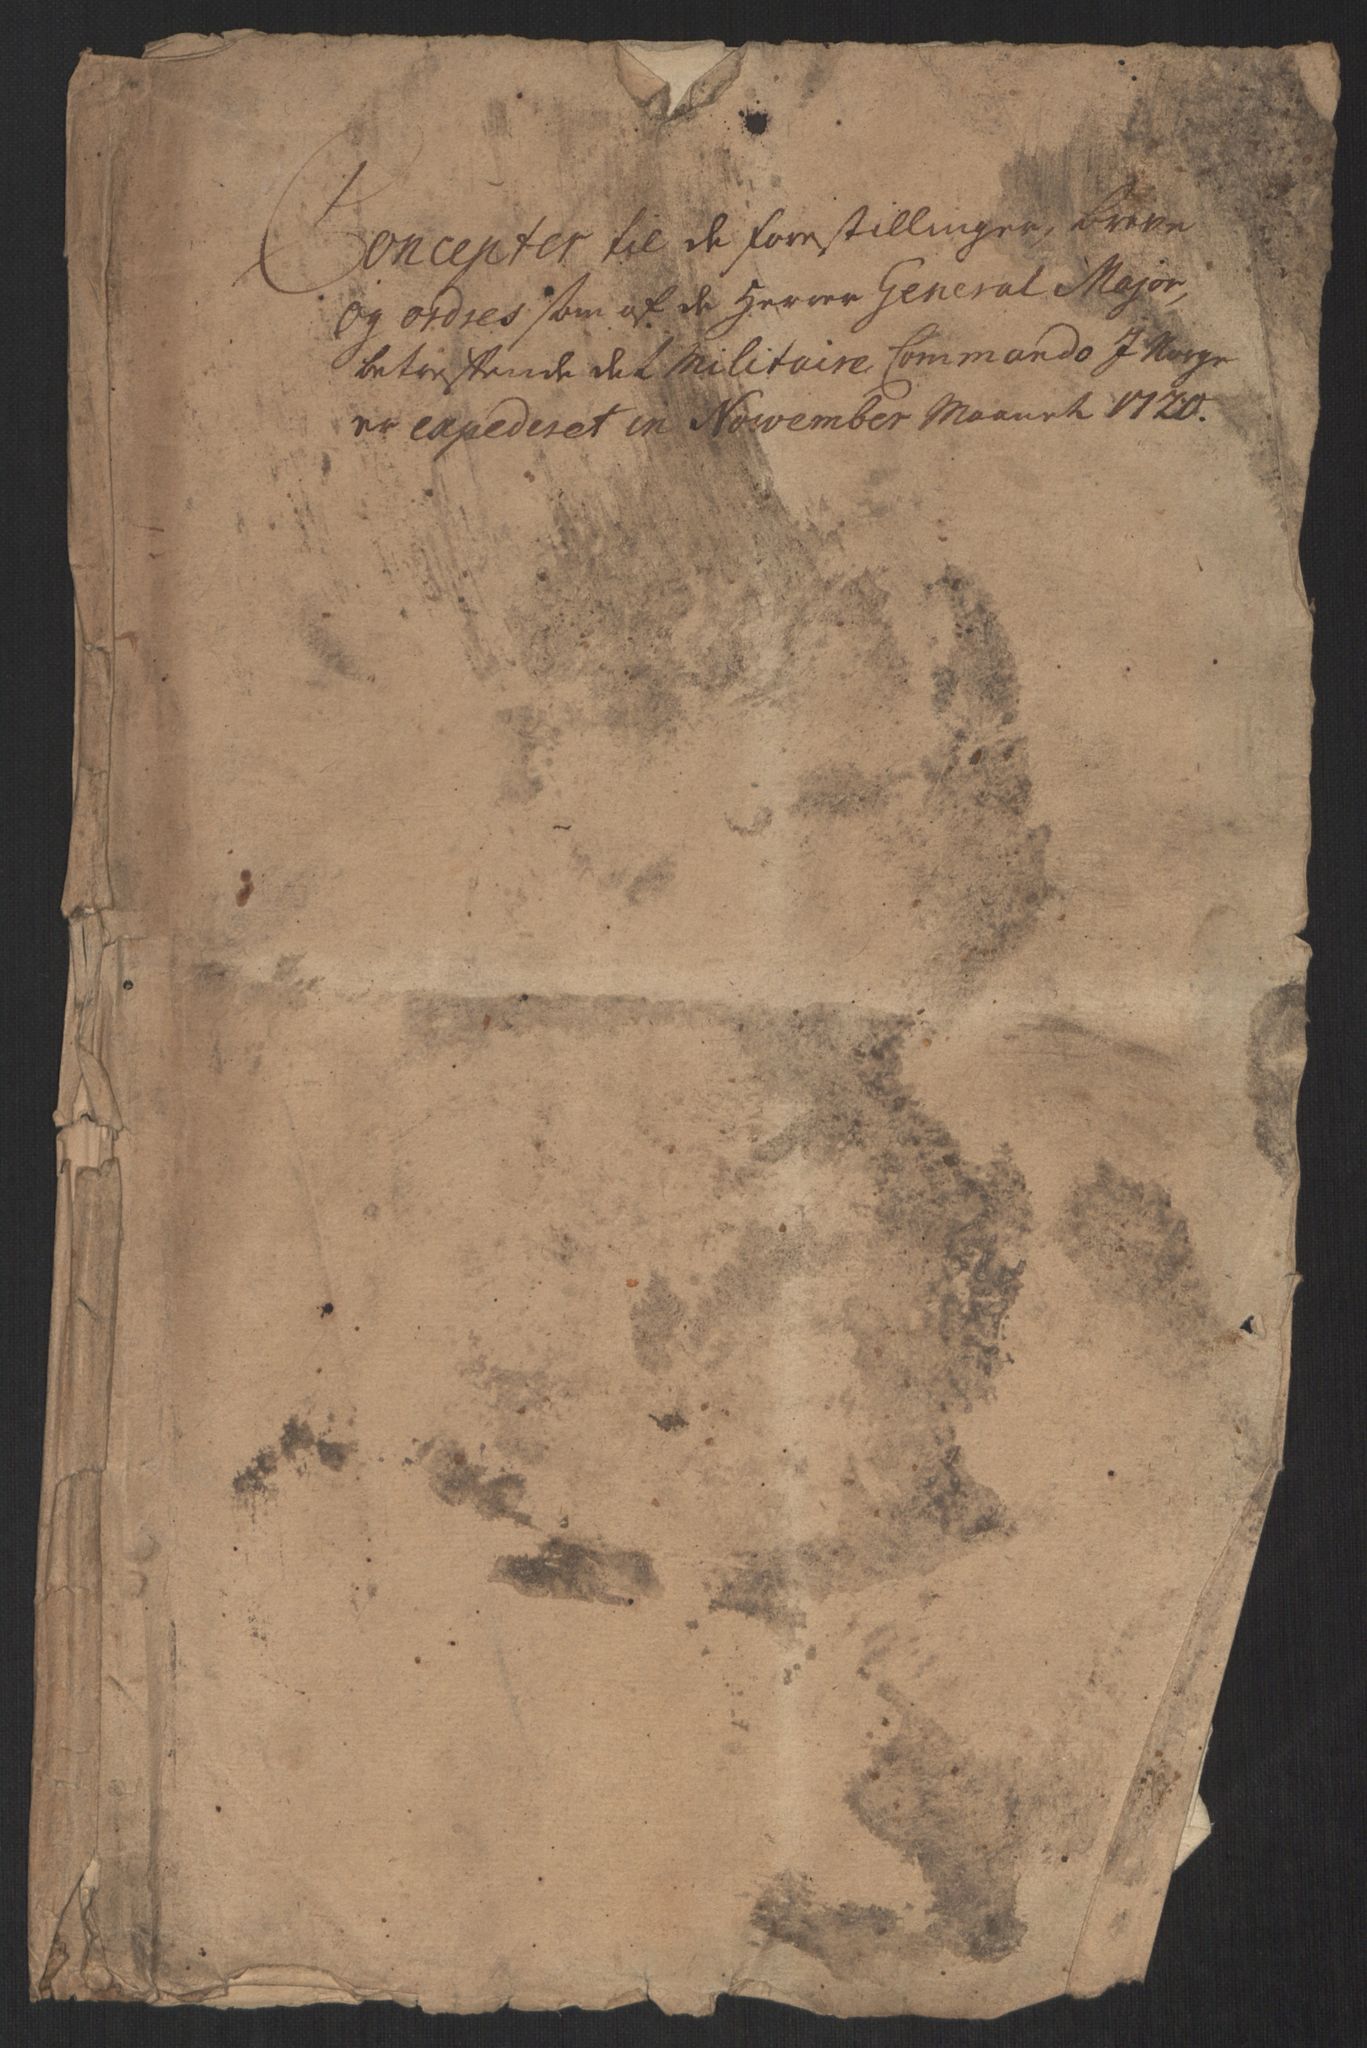 Concepter til de forestillinger, breve
og ordres som af de Herrer General Major,
betreffende det Militaire Commando J Norge
er expederet in November Maanet 1720.